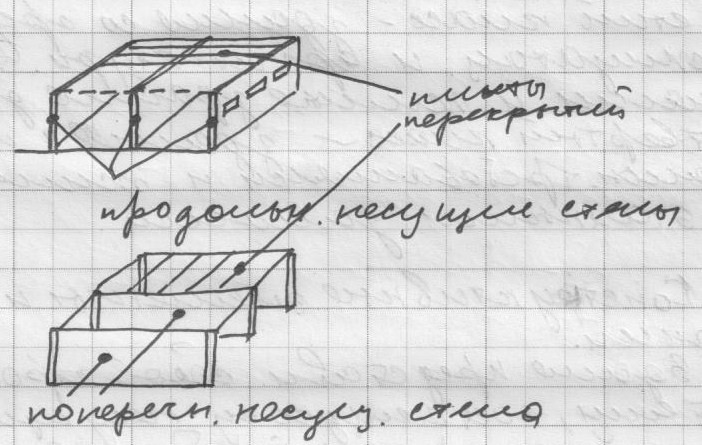 плиты
перекрытий
продольн. несущие стены
поперечн. несущ. стена